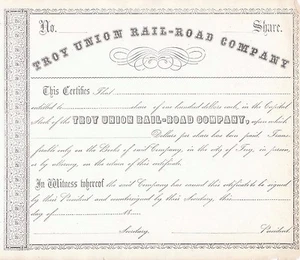 No. Share.
TROY UNION RAIL-ROAD COMPANY
This Certifies That
entitled to share of one hundred dollars each, in the Capital
Stock of the TROY UNION RAIL-ROAD COMPANY, upon which
Dollars per share has been paid. Trans
ferable only on the Books of said Company, in the city of Troy, in person,
or by attorney, on the return of this certificate.
In Witness whereof the said Company has caused this certificate to be signed
by their President and countersigned by their Secretary, this
day of 18
Secretary. President.